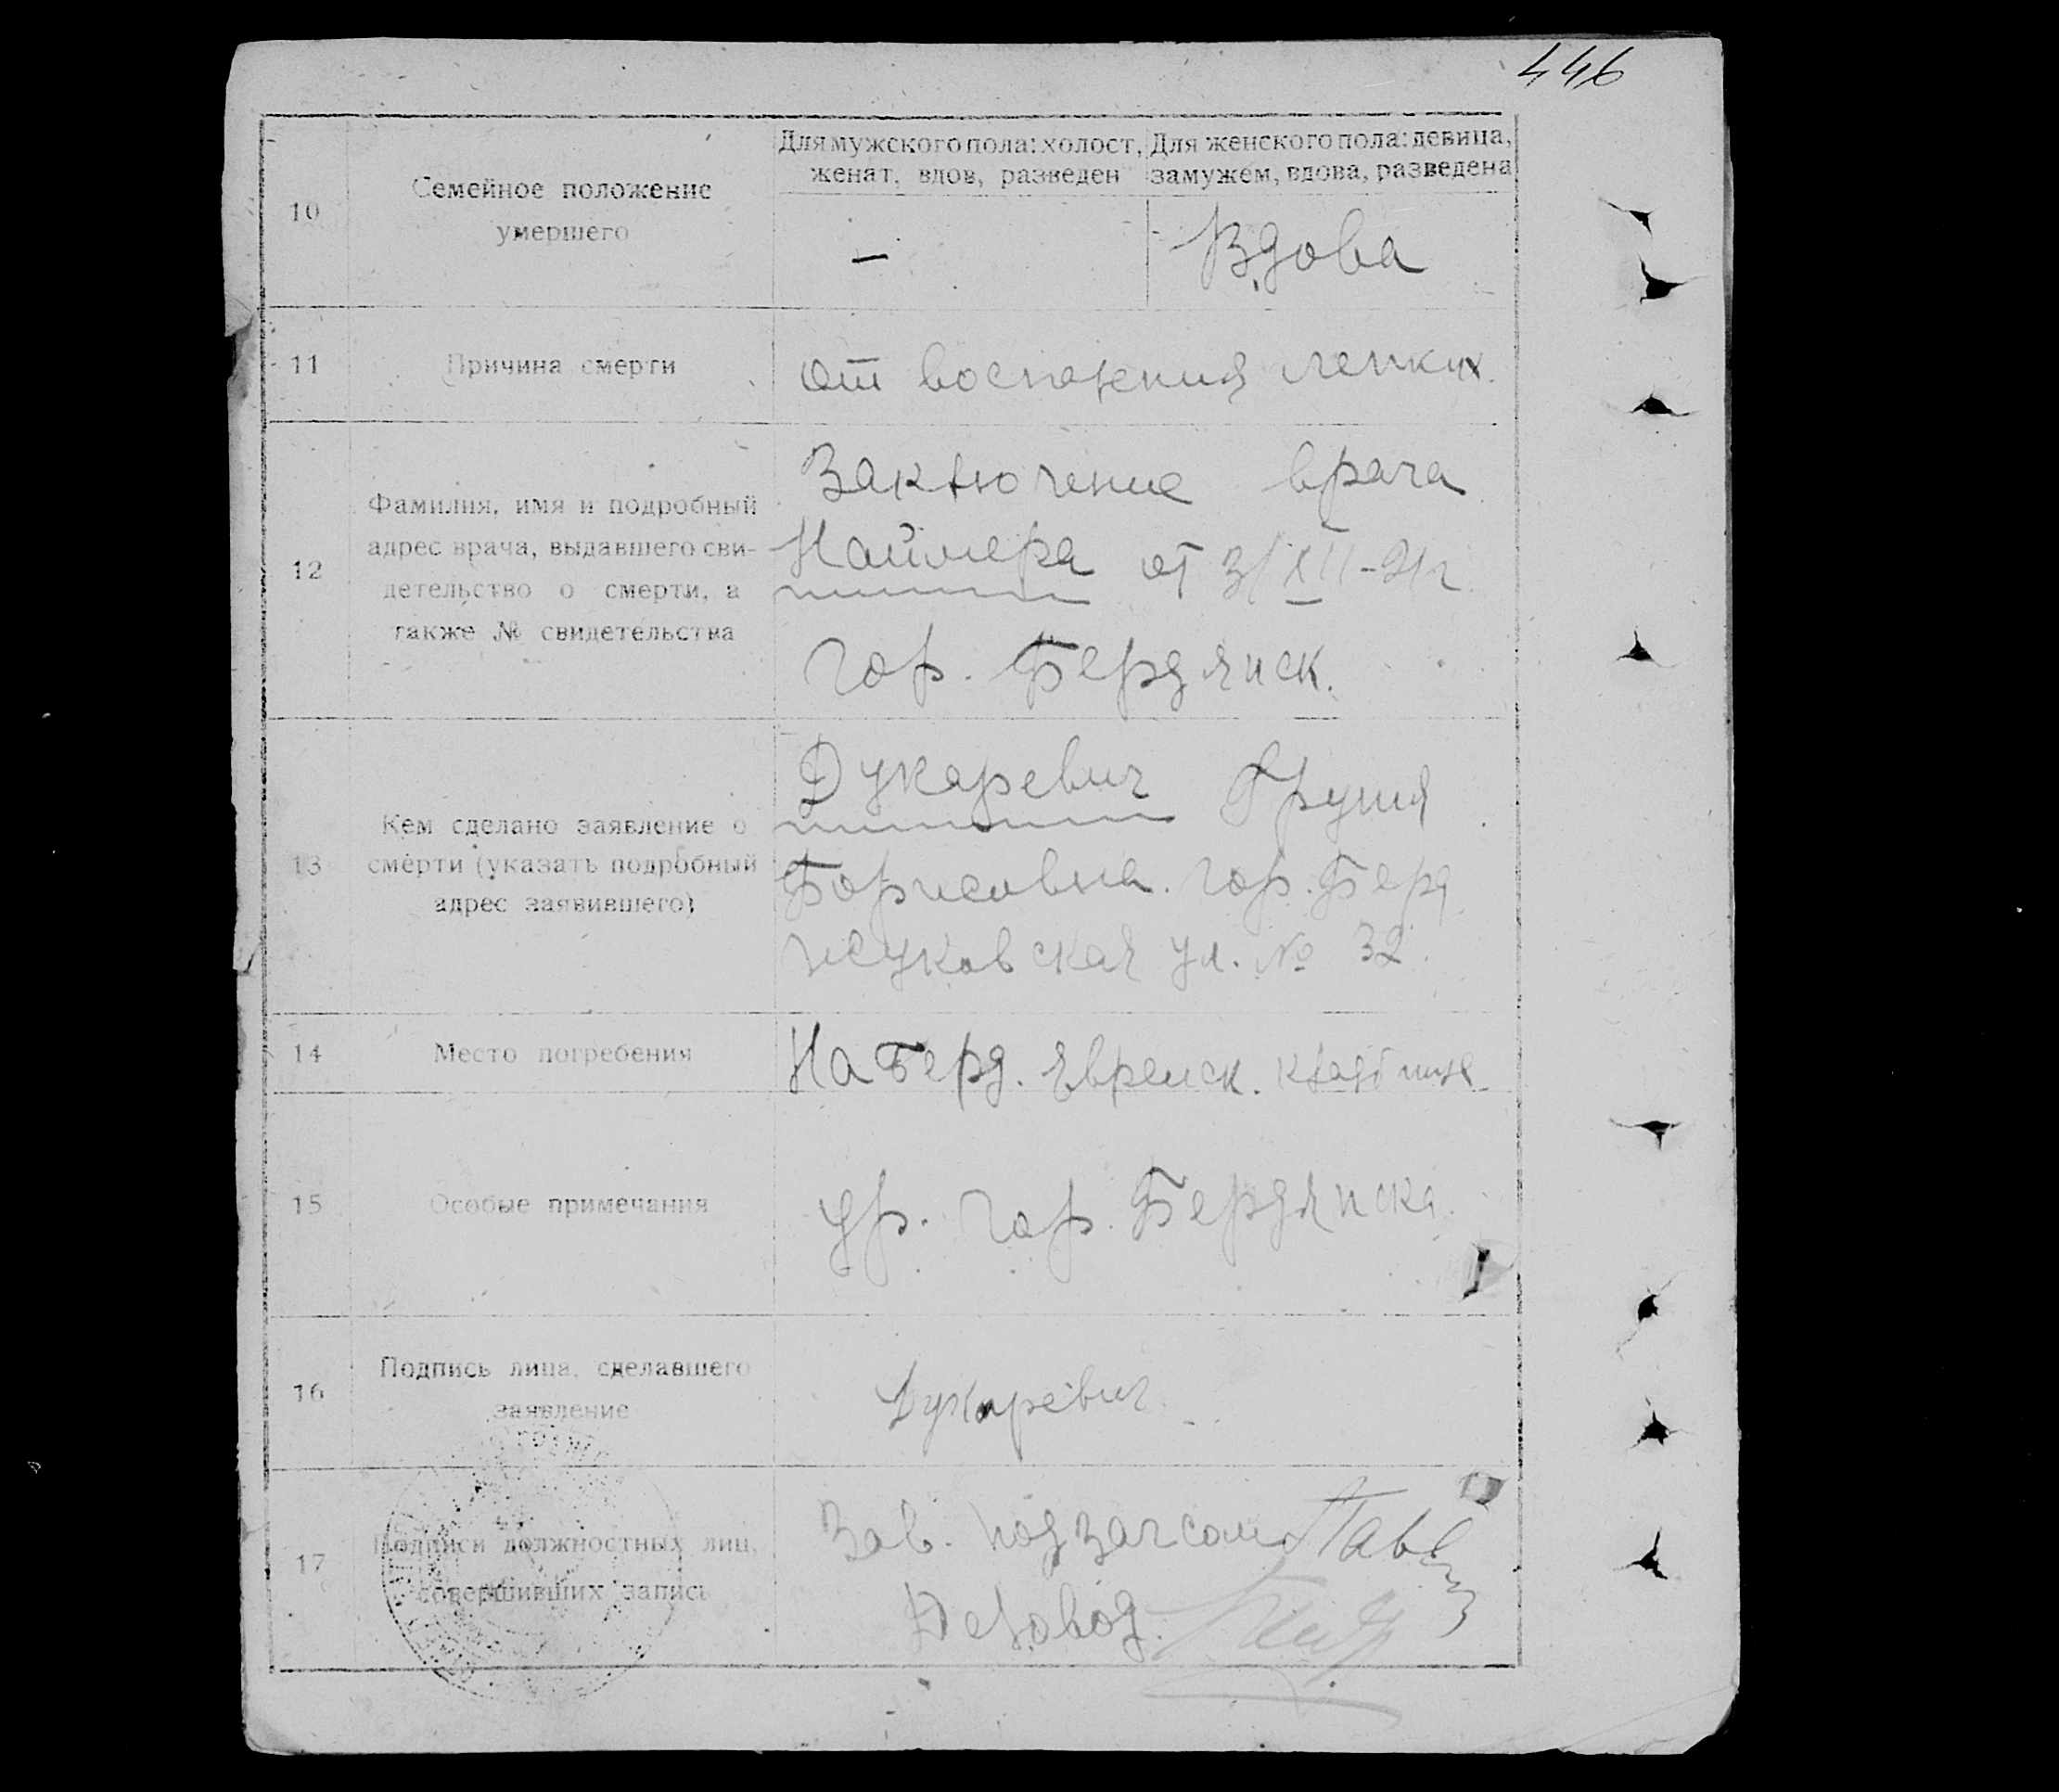 446
10
Семейное положение
умершего
Для мужского пола: холост,
женат, вдов, разведен
Для женского пола: девица,
замужем, вдова, разведена
—
Вдова
11
Причина смерти
от воспаления легких.
12
Фамилия, имя и подробный
адрес врача, выдавшего сви-
детельство о смерти, а
также № свидетельства
Заключение врача
Наймера от 3/XII-21г
гор. Бердянск.
13
Кем сделано заявление о
смерти (указать подробный
адрес заявившего)
Дукаревич Груня
Борисовна. гор. Берд
ул. № 32.
14
Место погребения
На Берд. Еврейск. кладбище
15
Особые примечания
ур. гор. Бердянска.
16
Подпись лица, сделавшего
заявление
Дукаревич
17
Подписи должностных лиц,
совершивших запись
Зав. подзагсом
Деловод.